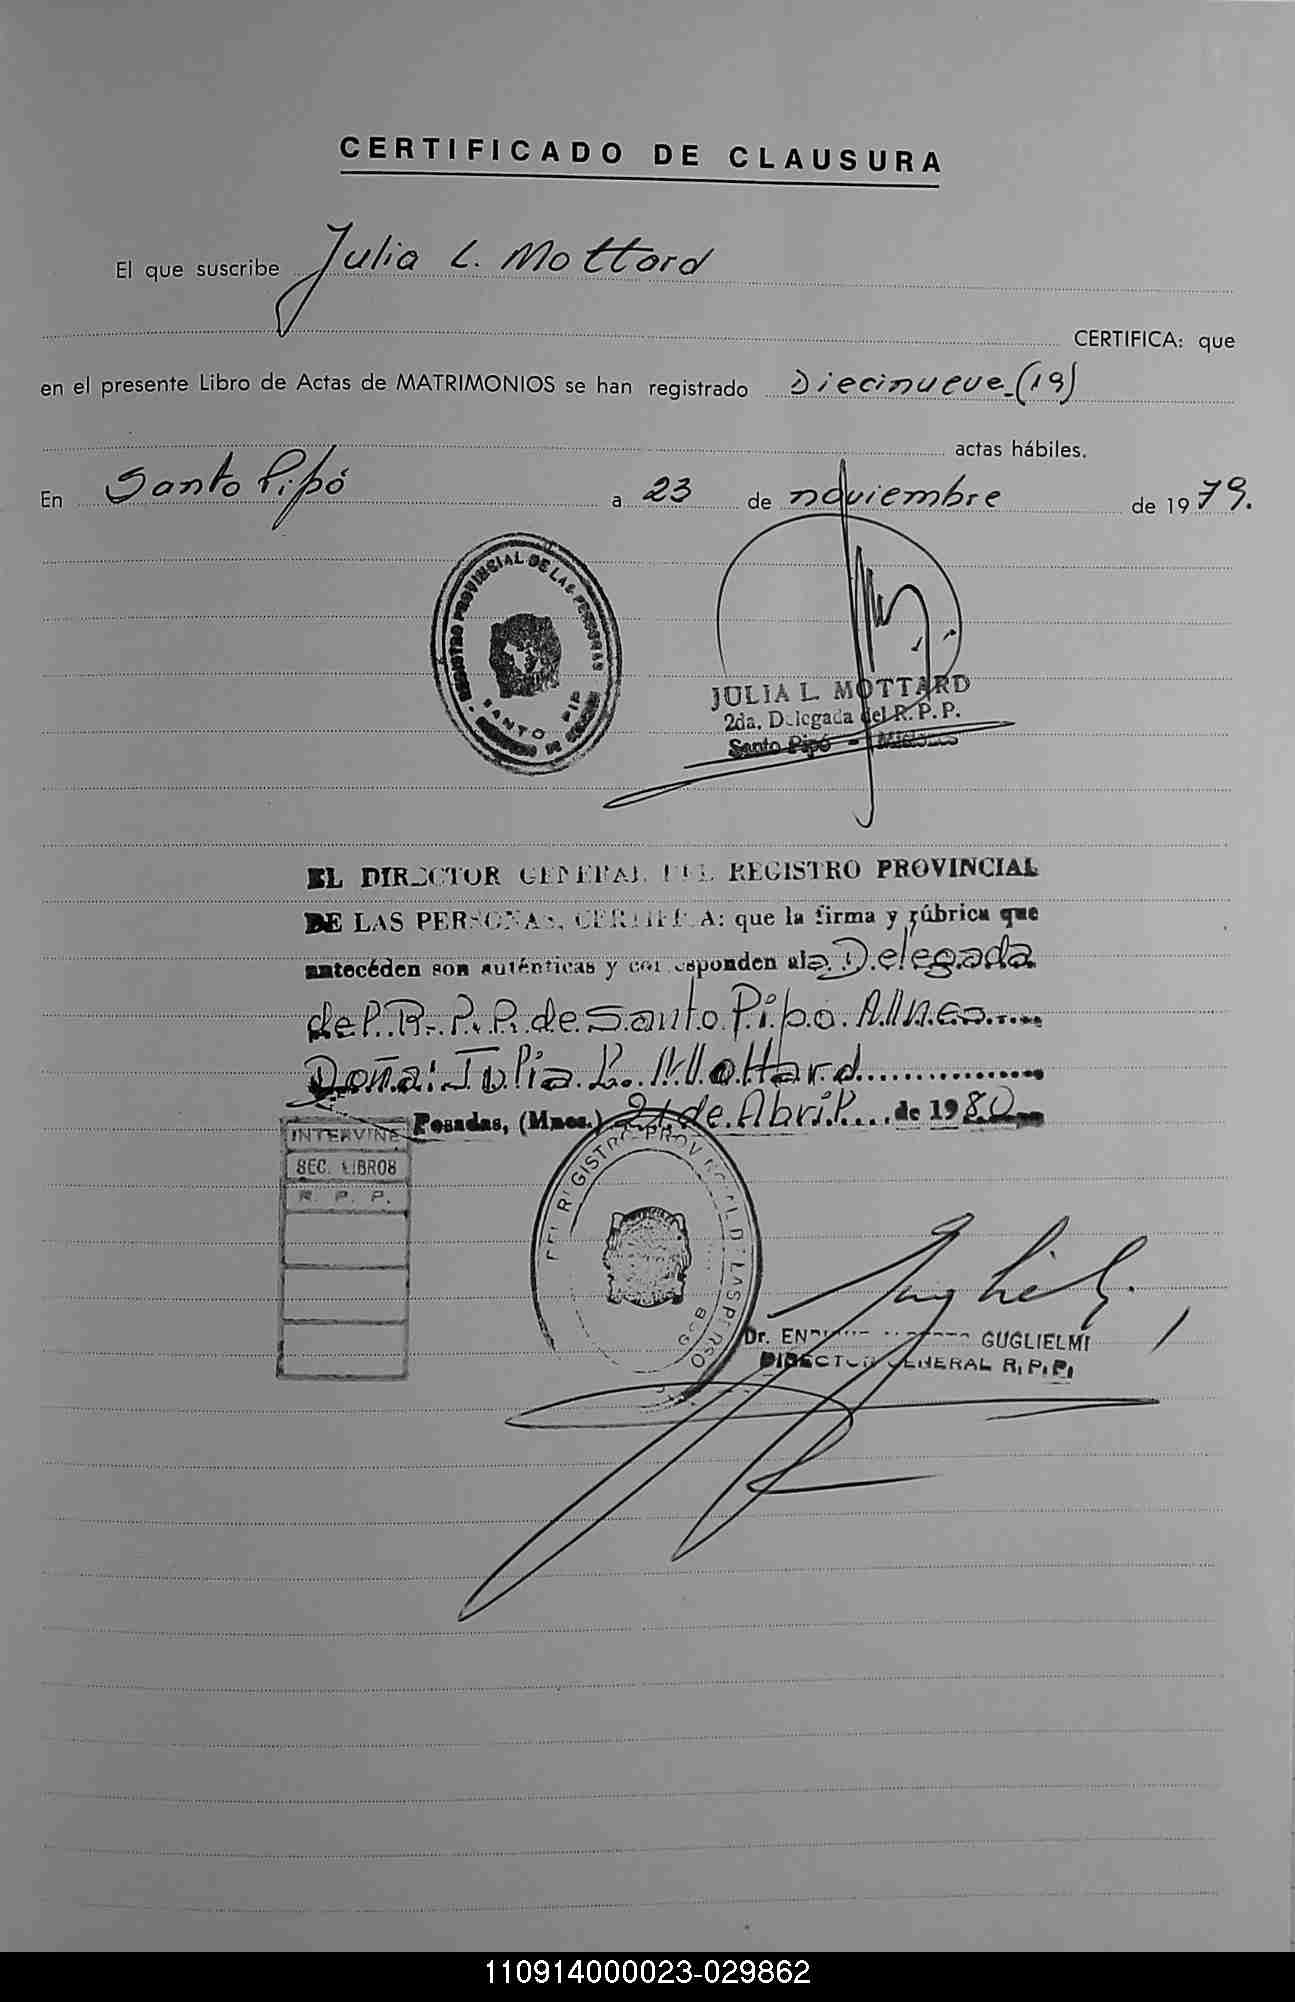 CERTIFICADO DE CLAUSURA
El que suscribe Julia L. Mottard
CERTIFICA: que
en el presente Libro de Actas de MATRIMONIOS se han registrado Diecinueve-(19)
actas hábiles.
En Santo Pipó a 23 de noviembre de 1979.
REGISTRO PROVINCIAL DE LAS PERSONAS
SANTO PIPO
JULIA L. MOTTARD
2da. Delegada del R.P.P.
Santo Pipó - Misiones
EL DIRECTOR GENERAL DEL REGISTRO PROVINCIAL
DE LAS PERSONAS, CERTIFICA: que la firma y rúbrica que
antecéden son auténticas y corresponden al a Delegada
del R. P. P. de Santo Pipó
Doña: Julia L. Mottard
Posadas, (Mnes.) 21 de Abril de 1980
INTERVINE
SEC. LIBROS
R. P. P.
DEL REGISTRO PROVINCIAL DE LAS PERSO
Dr. ENRIQUE GUGLIELMI
DIRECTOR GENERAL R.P.P.
110914000023-029862